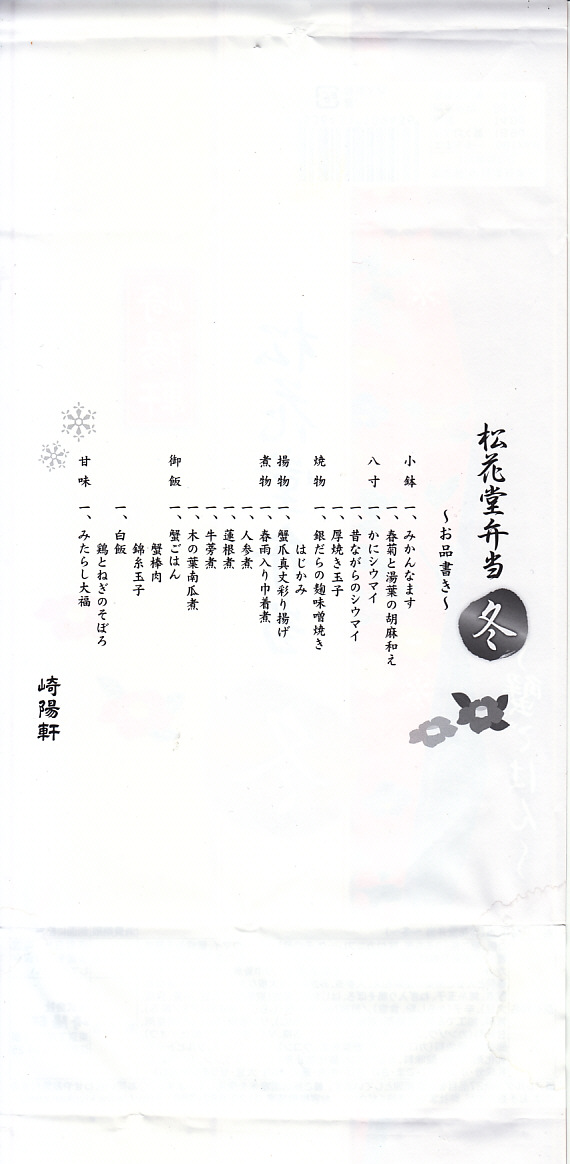 松花堂弁当 冬
～お品書き～
小鉢 一、みかんなます
一、春菊と湯葉の胡麻和え
八寸 一、かにシウマイ
一、昔ながらのシウマイ
一、厚焼き玉子
焼物 一、銀だらの麹味噌焼き
はじかみ
揚物 一、蟹爪真丈彩り揚げ
煮物 一、春雨入り巾着煮
一、人参煮
一、蓮根煮
一、牛蒡煮
一、木の葉南瓜煮
御飯 一、蟹ごはん
蟹棒肉
錦糸玉子
一、白飯
鶏とねぎのそぼろ
甘味 一、みたらし大福
崎陽軒